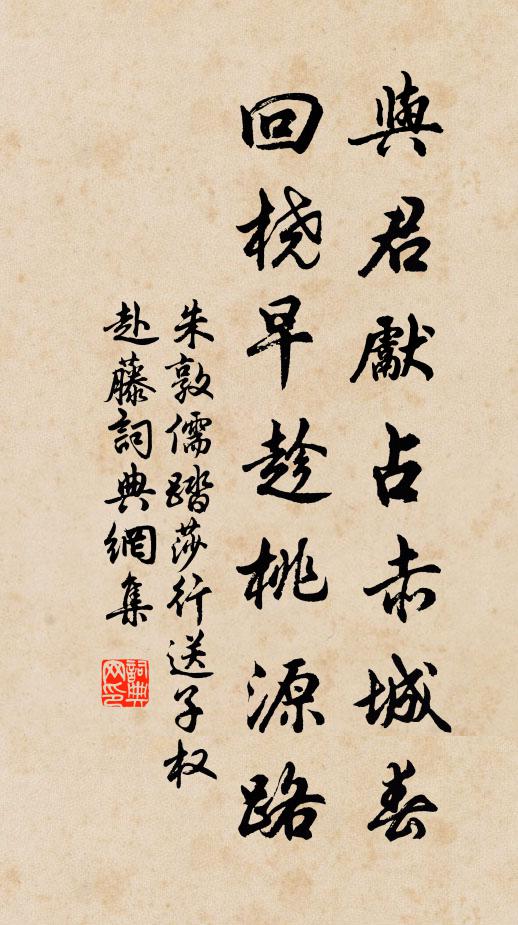 與君獻占赤城春
回桡早趁桃源路
朱敦儒踏莎行送子权
赴藤詞典網集
詞典网印